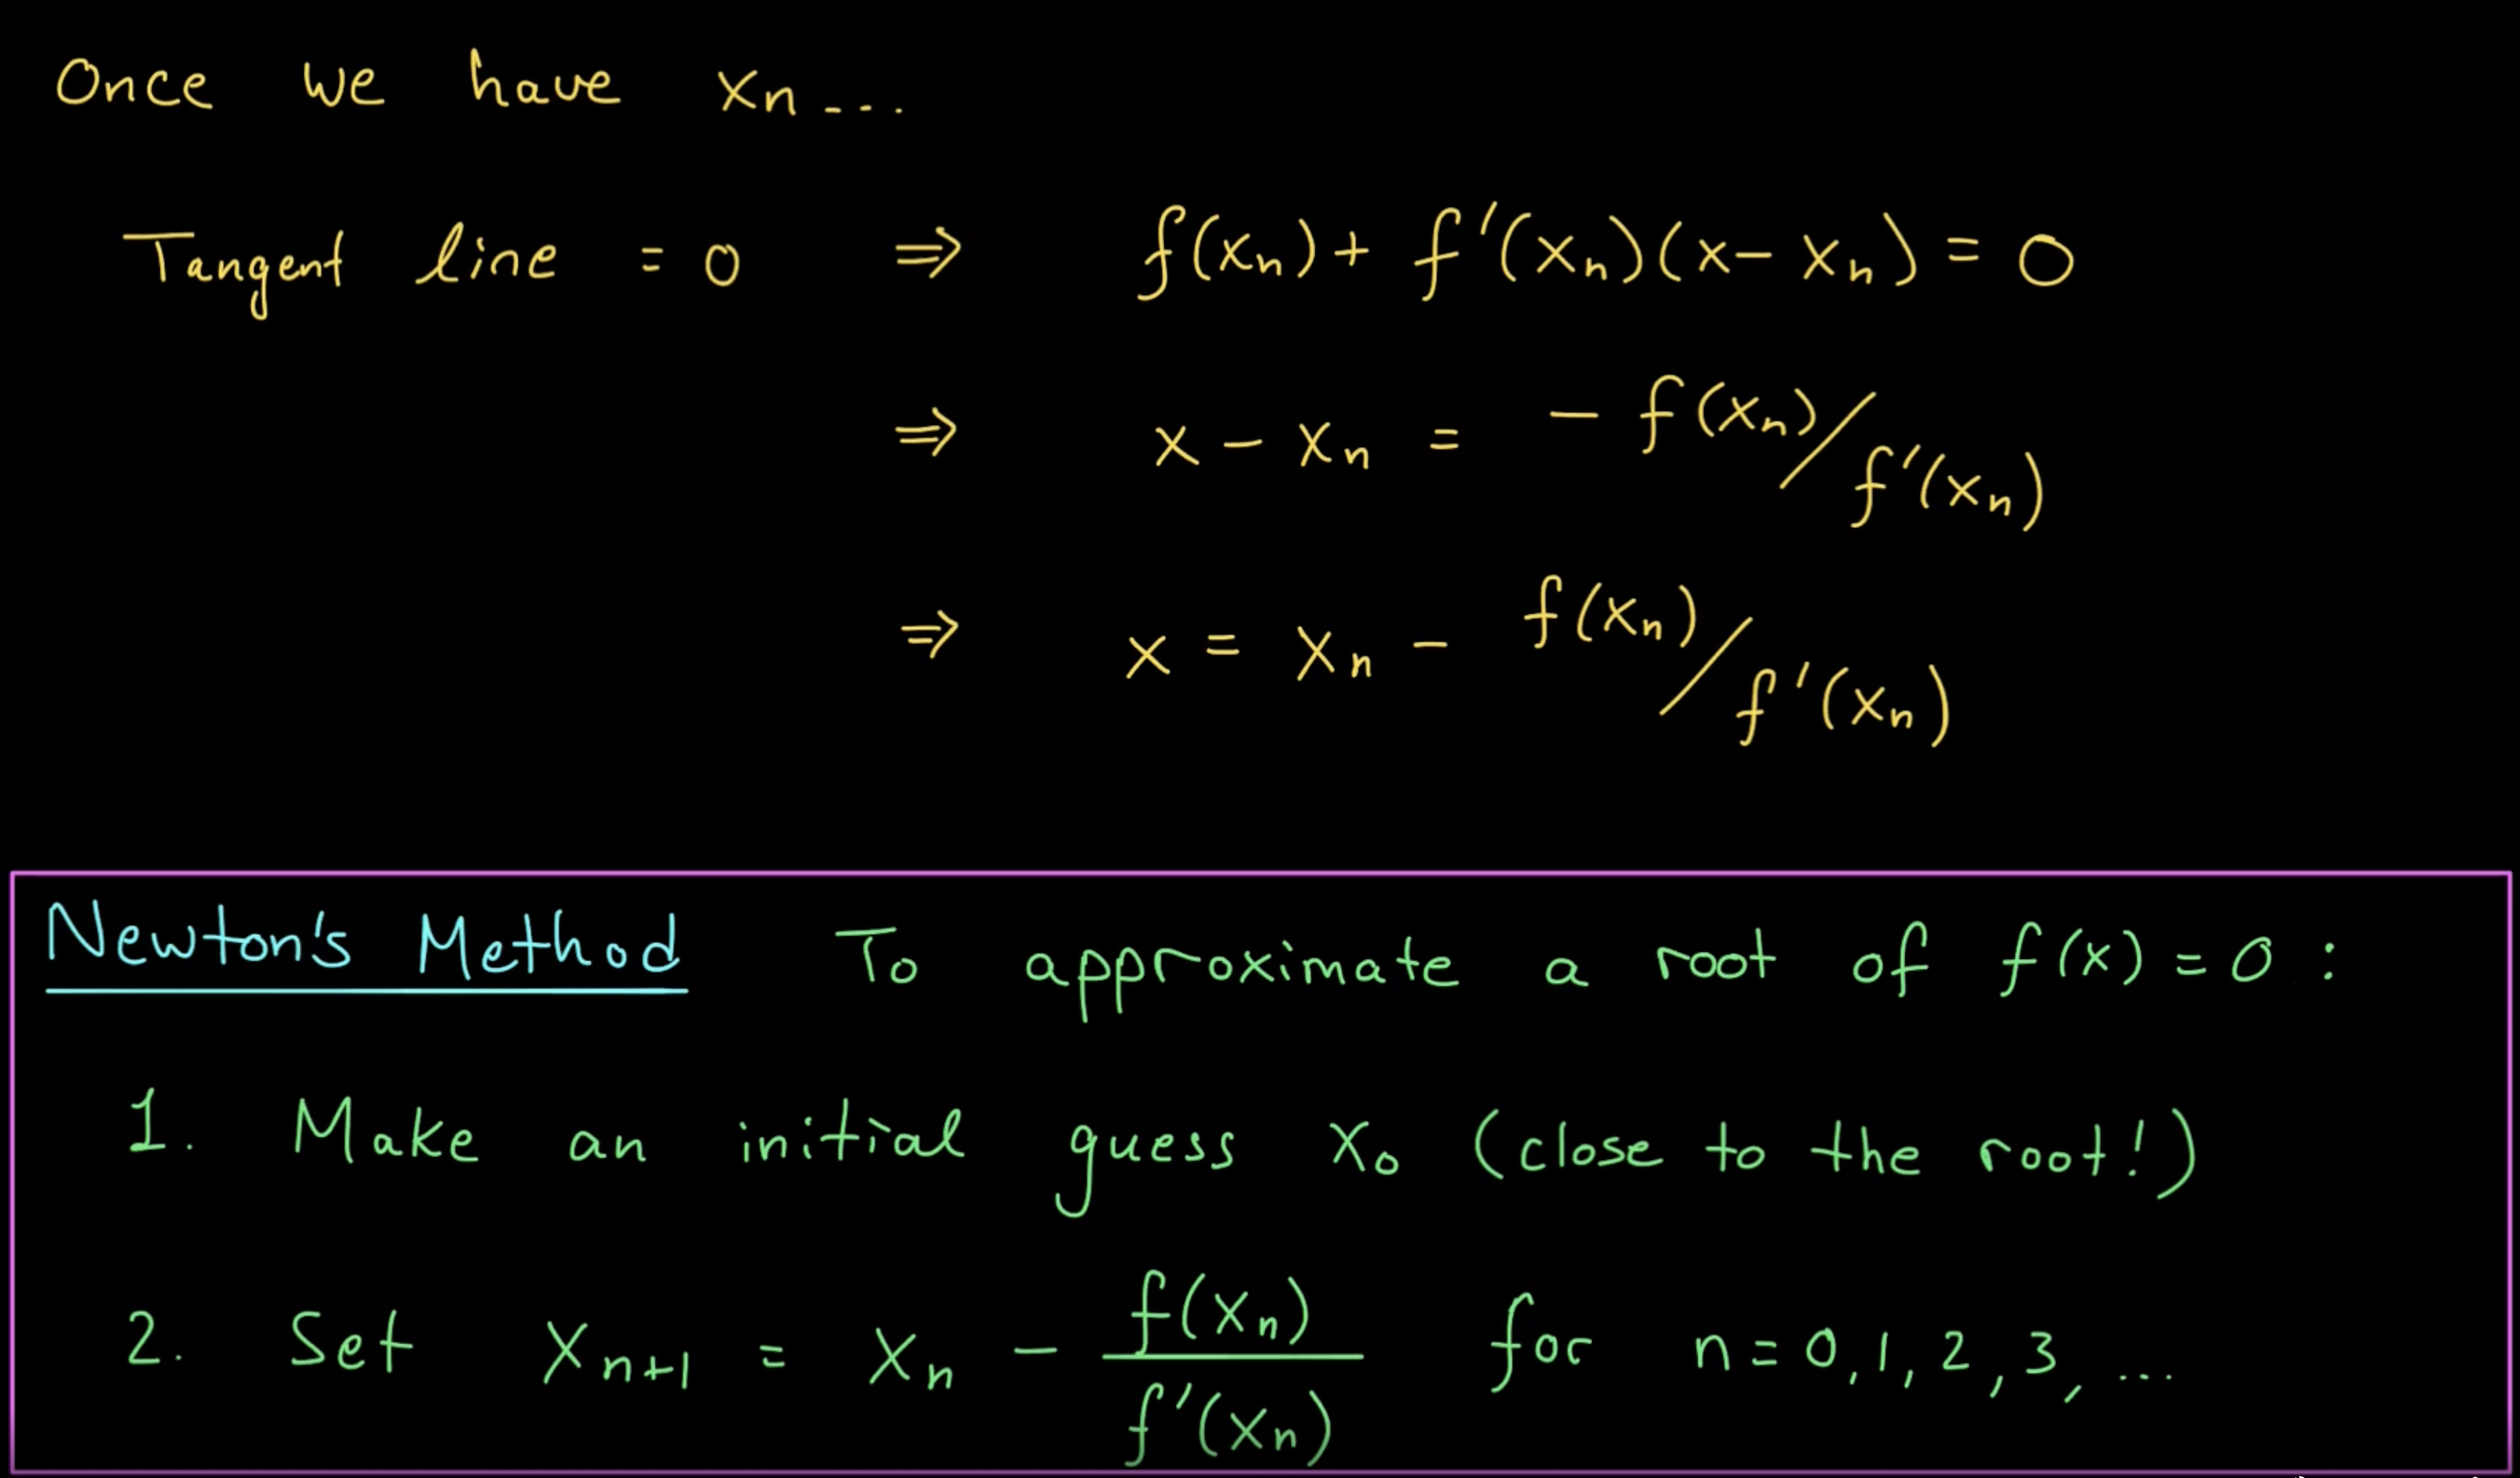 Once we have xₙ ...
Tangent line = 0 ⇒ f(xₙ) + f'(xₙ)(x - xₙ) = 0
⇒ x - xₙ = - f(xₙ)/f'(xₙ)
⇒ x = xₙ - f(xₙ)/f'(xₙ)
Newton's Method To approximate a root of f(x) = 0 :
1. Make an initial guess x₀ (close to the root!)
2. Set xₙ₊₁ = xₙ - f(xₙ)/f'(xₙ) for n = 0, 1, 2, 3, ...